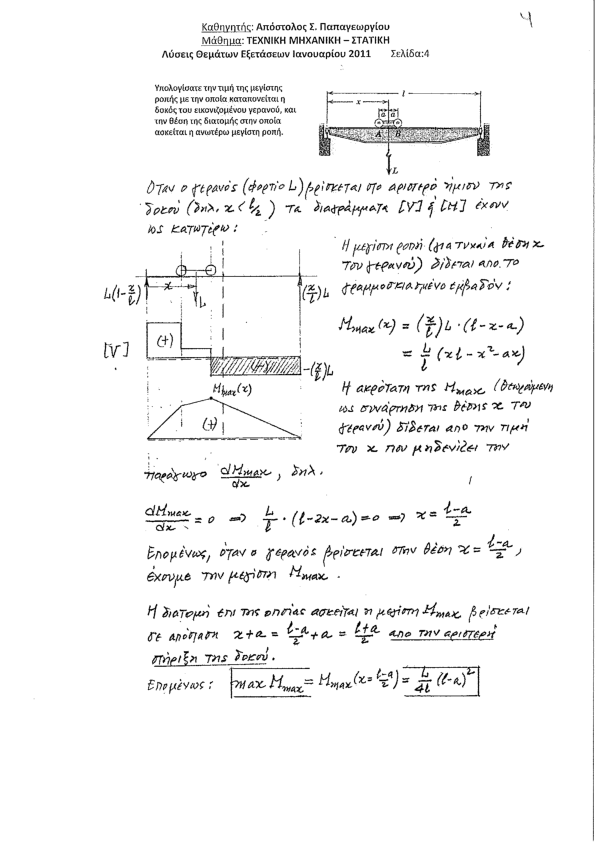 4
Καθηγητής: Απόστολος Σ. Παπαγεωργίου
Μάθημα: ΤΕΧΝΙΚΗ ΜΗΧΑΝΙΚΗ – ΣΤΑΤΙΚΗ
Λύσεις Θεμάτων Εξετάσεων Ιανουαρίου 2011 Σελίδα:4
Υπολογίσατε την τιμή της μεγίστης
ροπής με την οποία καταπονείται η
δοκός του εικονιζομένου γερανού, και
την θέση της διατομής στην οποία
ασκείται η ανωτέρω μεγίστη ροπή.
l
x
a a
A B
L
Όταν ο γερανός (φορτίο L) βρίσκεται στο αριστερό ήμισυ της
δοκού (δηλ. x < l/2) τα διαγράμματα [V] ή [M] έχουν
ως κατωτέρω:
Η μεγίστη ροπή (για τυχαία θέση x
του γερανού) δίδεται από το
γραμμοσκιασμένο εμβαδόν:
L(1-x/l)
x
L
(x/l)L
M_max(x) = (x/l)L·(l-x-a)
= L/l (xl-x²-ax)
[V]
(+)
(-)
-(x/l)L
M_max(x)
(+)
Η ακρότατη της M_max (θεωρούμενη
ως συνάρτηση της θέσης x του
γερανού) δίδεται από την τιμή
του x που μηδενίζει την
παράγωγο dM_max/dx, δηλ.
dM_max/dx = 0 ⇒ L/l·(l-2x-a)=0 ⇒ x = (l-a)/2
Επομένως, όταν ο γερανός βρίσκεται στην θέση x = (l-a)/2,
έχουμε την μεγίστη M_max.
Η διατομή επί της οποίας ασκείται η μεγίστη M_max βρίσκεται
σε απόσταση x+a = (l-a)/2 + a = (l+a)/2 από την αριστερή
στήριξη της δοκού.
Επομένως: max M_max = M_max(x = (l-a)/2) = L/4l (l-a)²